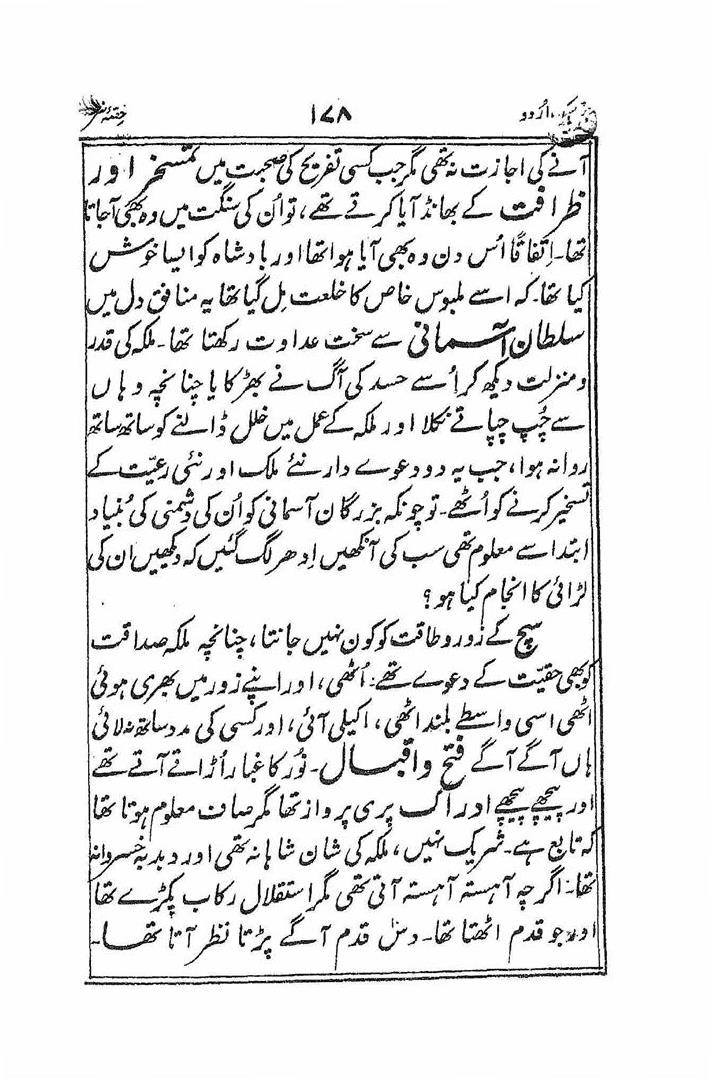 اُردو ۱۷۸ حِصّۂ نثر
آنے کی اجازت نہ تھی مگر جب کسی تفریح کی صحبت میں تمسخر اور
ظرافت کے بھانڈ آیا کرتے تھے، تو اُن کی سنگت میں وہ بھی آجاتا
تھا۔ اِتفاقًا اُس دن وہ بھی آیا ہوا تھا اور بادشاہ کو ایسا خوش
کیا تھا۔ کہ اسے ملبوس خاص کا خلعت مِل گیا تھا یہ منافق دل میں
سلطان آسمانی سے سخت عداوت رکھتا تھا۔ ملکہ کی قدر
و منزلت دیکھ کر اُسے حسد کی آگ نے بھڑکایا چنانچہ وہاں
سے چُپ چپاتے نکلا اور ملکہ کے عمل میں خلل ڈالنے کو ساتھ ساتھ
روانہ ہوا، جب یہ دو دعوے دار نئے ملک اور نئی رعیّت کے
تسخیر کرنے کو اُٹھے۔ تو چونکہ بزرگان آسمانی کو اُن کی دشمنی کی بُنیاد
ابتدا سے معلوم تھی سب کی آنکھیں اِدھر لگ گئیں کہ دیکھیں ان کی
لڑائی کا انجام کیا ہو؟
سچ کے زور و طاقت کو کون نہیں جانتا، چنانچہ ملکہ صداقت
کو بھی حقیّت کے دعوے تھے۔ اُٹھی، اور اپنے زور میں بھری ہوئی
اٹھی اسی واسطے بلند اٹھی، اکیلی آئی، اور کسی کی مدد ساتھ نہ لائی
ہاں آگے آگے فتح و اقبال۔ نُور کا غبار اُڑاتے آتے تھے
اور پیچھے پیچھے ادراک پری پرواز تھا مگر صاف معلوم ہوتا تھا
کہ تابع ہے۔ شریک نہیں، ملکہ کی شان شاہانہ تھی اور دبدبہ خسروانہ
تھا۔ اگرچہ آہستہ آہستہ آتی تھی مگر استقلال رکاب پکڑے تھا
اور جو قدم اٹھتا تھا۔ دس قدم آگے پڑتا نظر آتا تھا۔